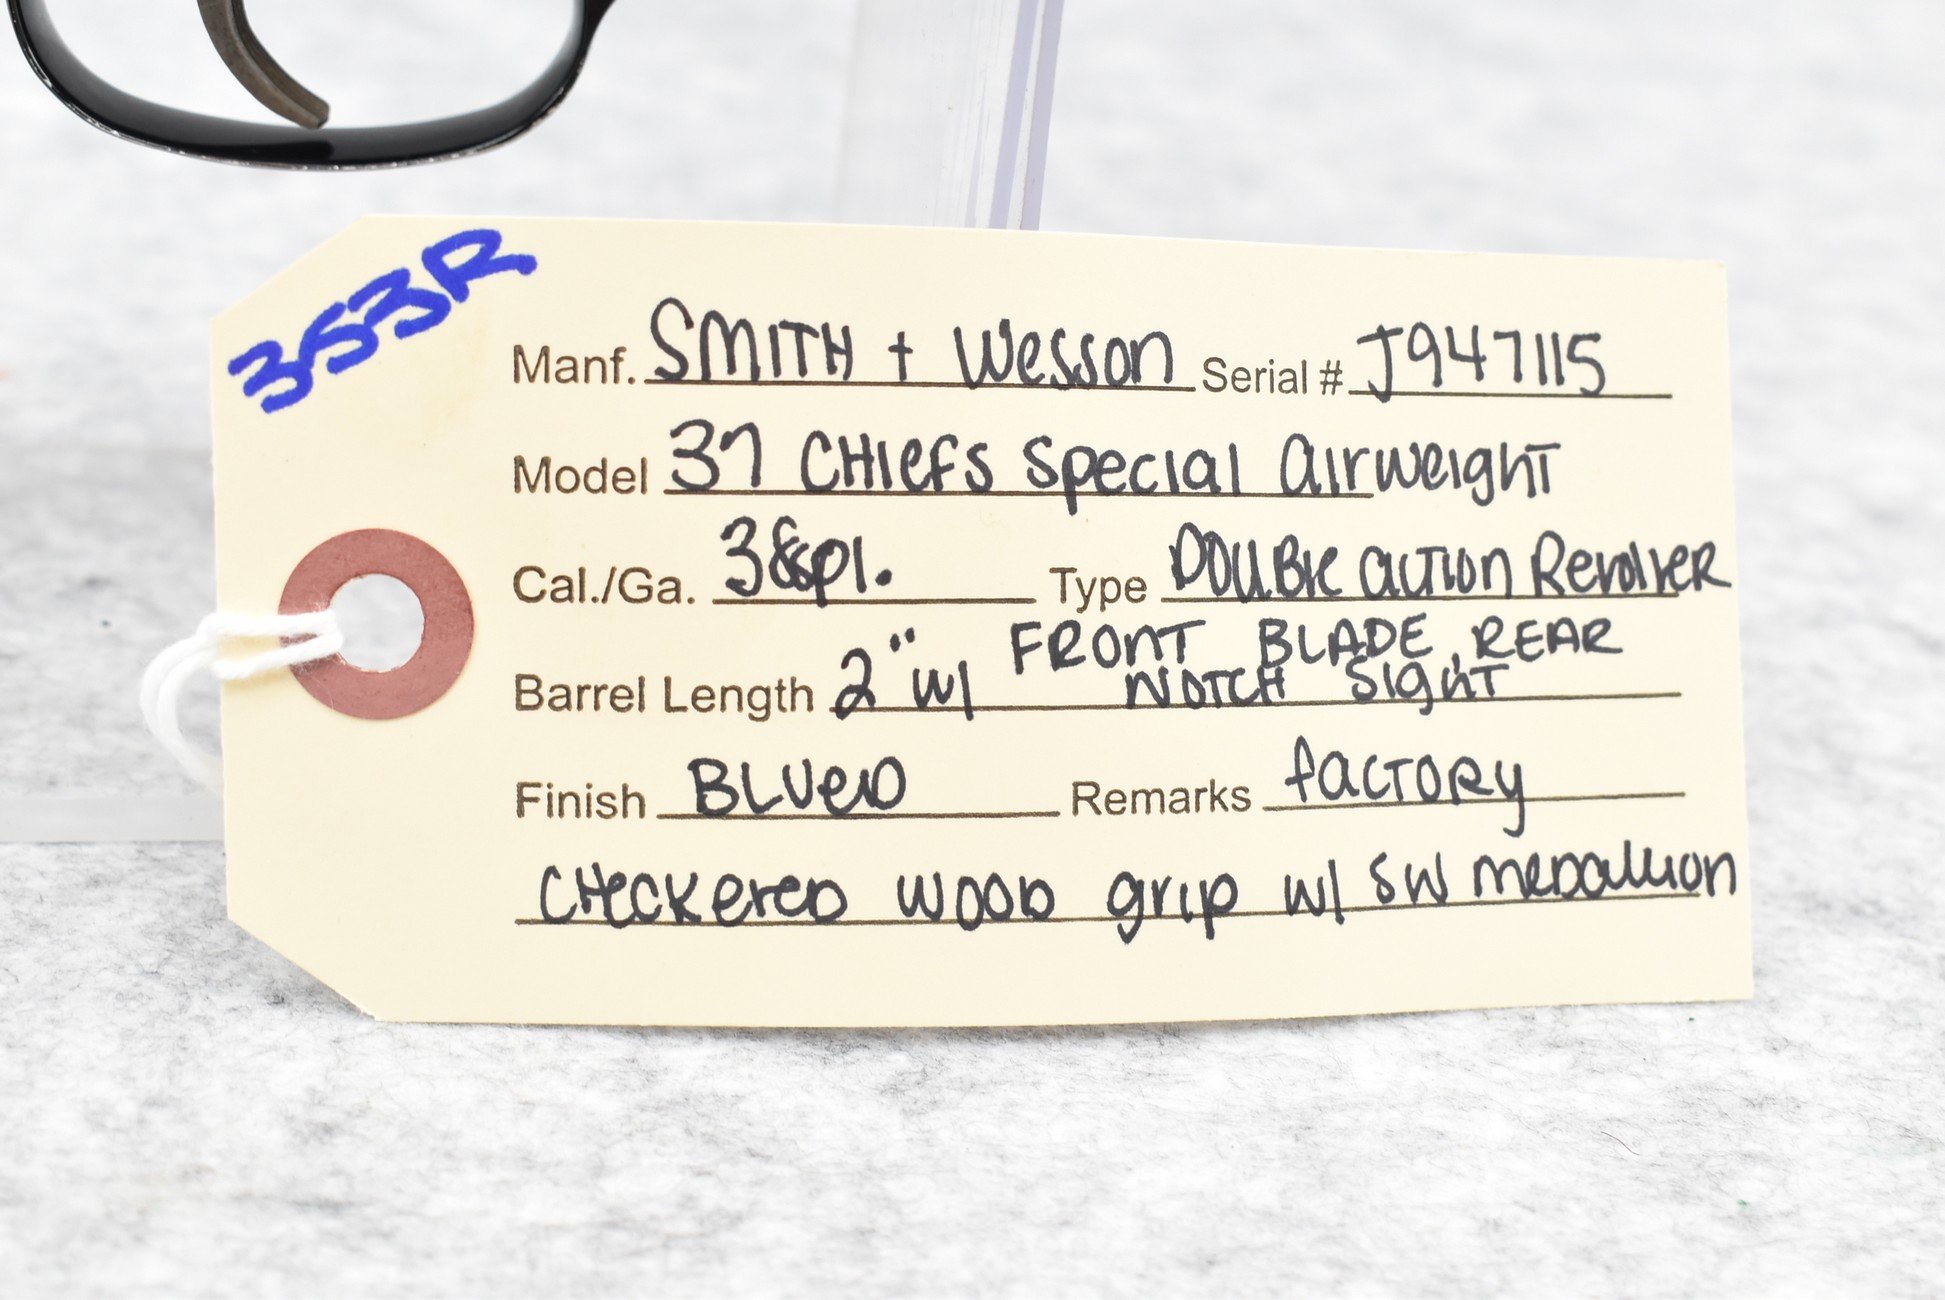 353R
Manf. SMITH + Wesson Serial # J947115
Model 37 CHIEFS Special Airweight
Cal./Ga. 38spl. Type Double Action Revolver
Barrel Length 2" w/ FRONT BLADE, REAR
NOTCH SIGHT
Finish BLUED Remarks factory
CHECKERED WOOD grip w/ SW medallion